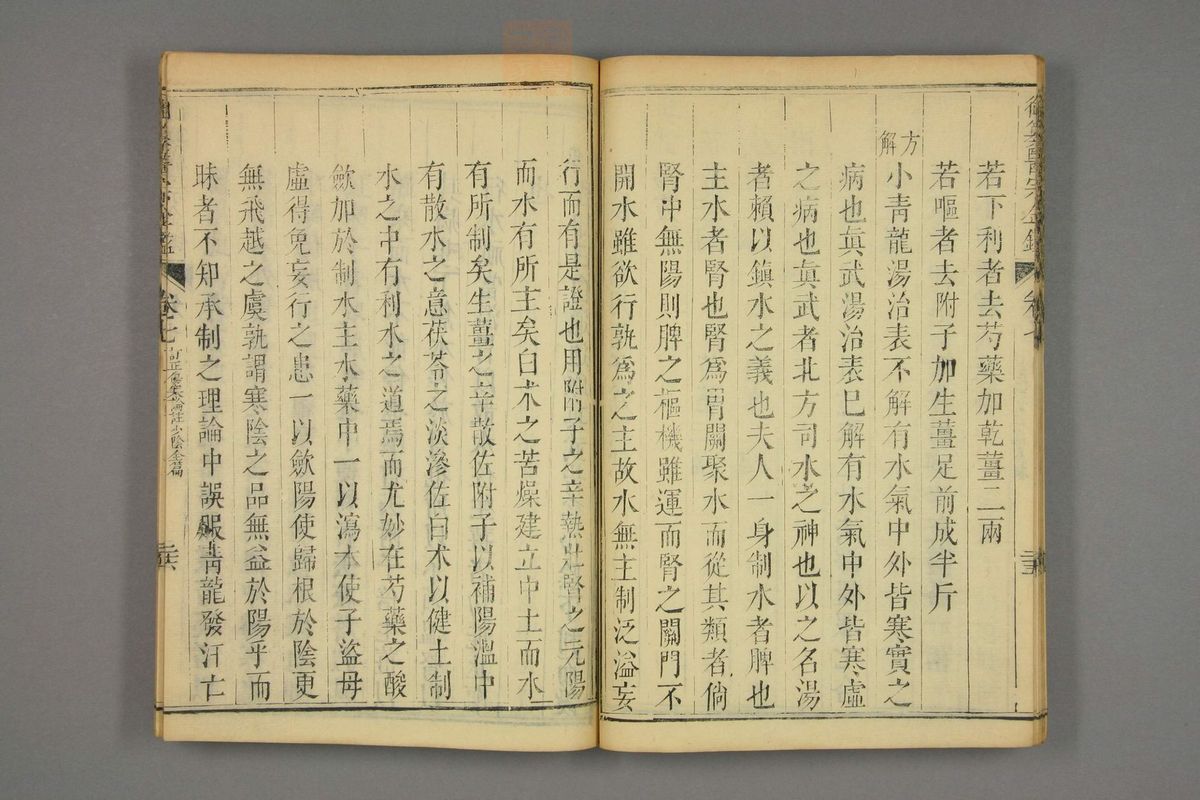 若下利者去芍藥加乾薑二兩
若嘔者去附子加生薑足前成半斤
方解
小青龍湯治表不解有水氣中外皆寒實之
病也眞武湯治表已解有水氣中外皆寒虛
之病也眞武者北方司水之神也以之名湯
者賴以鎮水之義也夫人一身制水者脾也
主水者腎也腎爲胃關聚水而從其類者倘
腎中無陽則脾之樞機雖運而腎之關門不
開水雖欲行孰爲之主故水無主制泛溢妄
行而有是證也用附子之辛熱壯腎之元陽
而水有所主矣白术之苦燥建立中土而水
有所制矣生薑之辛散佐附子以補陽溫中
有散水之意茯苓之淡滲佐白术以健土制
水之中有利水之道焉而尤妙在芍藥之酸
歛加於制水主水藥中一以瀉水使子盜母
虛得免妄行之患一以歛陽使歸根於陰更
無飛越之虞孰謂寒陰之品無益於陽乎而
昧者不知承制之理論中誤服靑龍發汗亡
卷七
訂正傷寒論註少陰全篇
二六